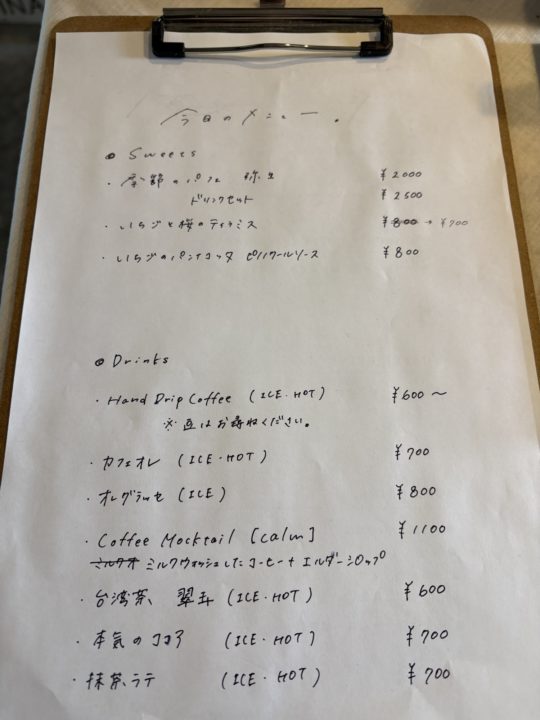 INA
今日のメニュー。
● Sweets
・季節のパフェ 弥生 ¥2000
ドリンクセット ¥2500
・いちごと桜のティラミス ¥800 → ¥700
・いちごのパンナコッタ ピノノワールソース ¥800
● Drinks
・Hand Drip Coffee (ICE・HOT) ¥600〜
※豆はお尋ねください。
・カフェオレ (ICE・HOT) ¥700
・オレグラッセ (ICE) ¥800
・Coffee Mocktail [calm] ¥1100
ミルクオ ミルクウォッシュしたコーヒー+エルダーシロップ
・台湾茶 翠玉 (ICE・HOT) ¥600
・本気のココア (ICE・HOT) ¥700
・抹茶ラテ (ICE・HOT) ¥700